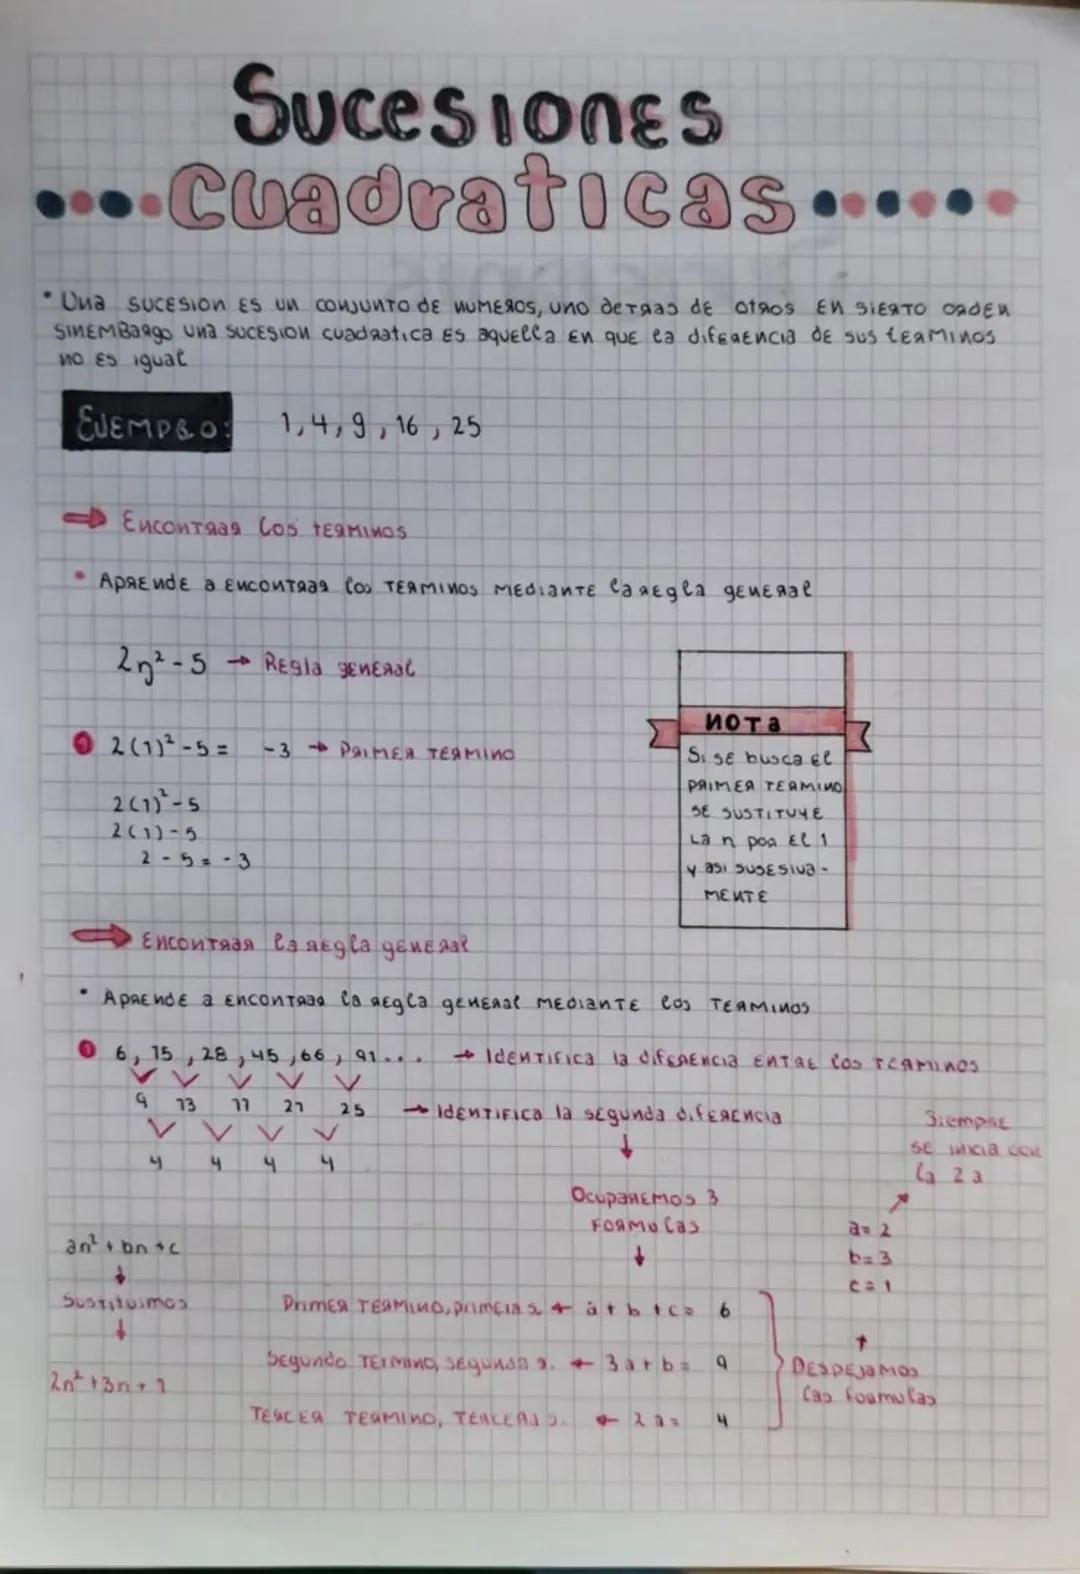 Sucesiones
Cuadraticas
• Una sucesion es un conjunto de numeros, uno detras de otros en sierto orden
sinembargo una sucesion cuadratica es aquella en que la diferencia de sus terminos
no es igual
Ejemplo: 1, 4, 9, 16, 25
⇒ Encontrar los terminos
• Aprende a encontrar los terminos mediante la regla general
2n² - 5 → Regla general
1 2(1)² - 5 = -3 → Primer termino
2(1)² - 5
2(1) - 5
2 - 5 = -3
Nota
Si se busca el
primer termino
se sustituye
la n por el 1
y asi susesiva-
mente
⇒ Encontrar la regla general
• Aprende a encontrar la regla general mediante los terminos
1 6, 15, 28, 45, 66, 91... → Identifica la diferencia entre los terminos
9 13 17 21 25 → Identifica la segunda diferencia
4 4 4 4
Siempre
se inicia con
la 2a
↓
Ocuparemos 3
formulas
↓
a = 2
b = 3
c = 1
an² + bn + c
↓
Sustituimos
↓
2n² + 3n + 1
Primer termino, primera s. ← a + b + c = 6
Segundo termino, segunda s. ← 3a + b = 9
Tercer termino, tercera s. ← 2a = 4
↑
Despejamos
las formulas